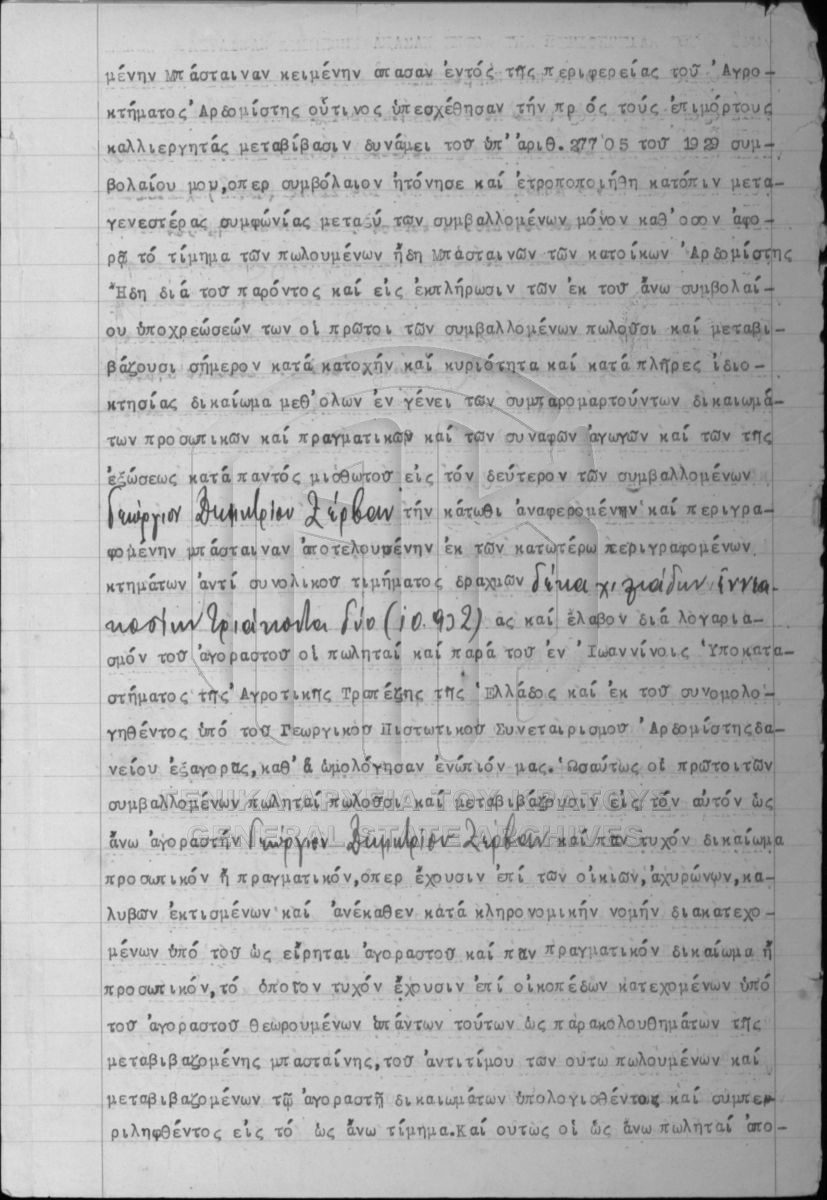 μένην Μπάσταιναν κειμένην απασαν ἐντός τῆς περιφερείας τοῦ Ἀγρο-
κτήματος Ἀρδομίστης οὗτινος ὑπεσχέθησαν τήν πρ ός τούς ἐπιμόρτους
καλλιεργητάς μεταβίβασιν δυνάμει τοῦ ὑπ' ἀριθ. 27705 τοῦ 1929 συμ-
βολαίου μου, οπερ συμβόλαιον ἠτόνησε καί ἐτροποποιήθη κατόπιν μετα-
γενεστέρας συμφωνίας μεταξύ τῶν συμβαλλομένων μόνον καθ'οσον ἀφο-
ρᾷ τό τίμημα τῶν πωλουμένων ἤδη Μπάσταινῶν τῶν κατοίκων Ἀρδομίστης
Ἤδη διά τοῦ παρόντος καί εἰς ἐκπλήρωσιν τῶν ἐκ τοῦ ἄνω συμβολαί-
ου ὑποχρεώσεών των οἱ πρῶτοι τῶν συμβαλλομένων πωλοῦσι καί μεταβι-
βάζουσι σήμερον κατά κατοχήν καί κυριότητα καί κατά πλῆρες ἰδιο-
κτησίας δικαίωμα μεθ'ολων ἐν γένει τῶν συμπαρομαρτούντων δικαιωμά-
των προσωπικῶν καί πραγματικῶν καί τῶν συναφῶν ἀγωγῶν καί τῶν τῆς
ἐξώσεως κατά παντός μισθωτοῦ εἰς τόν δεύτερον τῶν συμβαλλομένων
Γεώργιον Δημητρίου Ζέρβαν τήν κάτωθι ἀναφερομένην καί περιγρα-
φομένην μπάσταιναν ἀποτελουμένην ἐκ τῶν κατωτέρω περιγραφομένων
κτημάτων ἀντί συνολικοῦ τιμήματος δραχμῶν δέκα χιλιάδων ἐννια-
κοσίων τριάκοντα δύο (10.932) ας καί ἔλαβον διά λογαρια-
σμόν τοῦ ἀγοραστοῦ οἱ πωληταί καί παρά τοῦ ἐν Ἰωαννίνοις Ὑποκατα-
στήματος τῆς Ἀγροτικῆς Τραπέζης τῆς Ἑλλάδος καί ἐκ τοῦ συνομολο-
γηθέντος ὑπό τοῦ Γεωργικοῦ Πιστωτικοῦ Συνεταιρισμοῦ Ἀρδομίστηςδα-
νείου ἐξαγορᾶς, καθ' ἅ ὡμολόγησαν ἐνώπιόν μας. Ὡσαύτως οἱ πρῶτοιτῶν
συμβαλλομένων πωληταί πωλοῦσι καί μεταβιβάζουσιν εἰς τόν αὐτόν ὡς
ἄνω ἀγοραστήν Γεώργιον Δημητρίου Ζέρβαν καί πᾶν τυχόν δικαίωμα
προσωπικόν ἤ πραγματικόν, οπερ ἔχουσιν ἐπί τῶν οἰκιῶν, ἀχυρώνων, κα-
λυβῶν ἐκτισμένων καί ἀνέκαθεν κατά κληρονομικήν νομήν διακατεχο-
μένων ὑπό τοῦ ὡς εἴρηται ἀγοραστοῦ καί πᾶν πραγματικόν δικαίωμα ἤ
προσωπικόν, τό ὁποῖον τυχόν ἔχουσιν ἐπί οἰκοπέδων κατεχομένων ὑπό
τοῦ ἀγοραστοῦ θεωρουμένων ἁπάντων τούτων ὡς παρακολουθημάτων τῆς
μεταβιβαζομένης μπασταίνης, τοῦ ἀντιτίμου τῶν ουτω πωλουμένων καί
μεταβιβαζομένων τῷ ἀγοραστῇ δικαιωμάτων ὑπολογισθέντος καί συμπε-
ριληφθέντος εἰς τό ὡς ἄνω τίμημα. Καί ουτως οἱ ὡς ἄνω πωληταί ἀπο-
ΓΕΝΙΚΑ ΑΡΧΕΙΑ ΤΟΥ ΚΡΑΤΟΥΣ
GENERAL STATE ARCHIVES